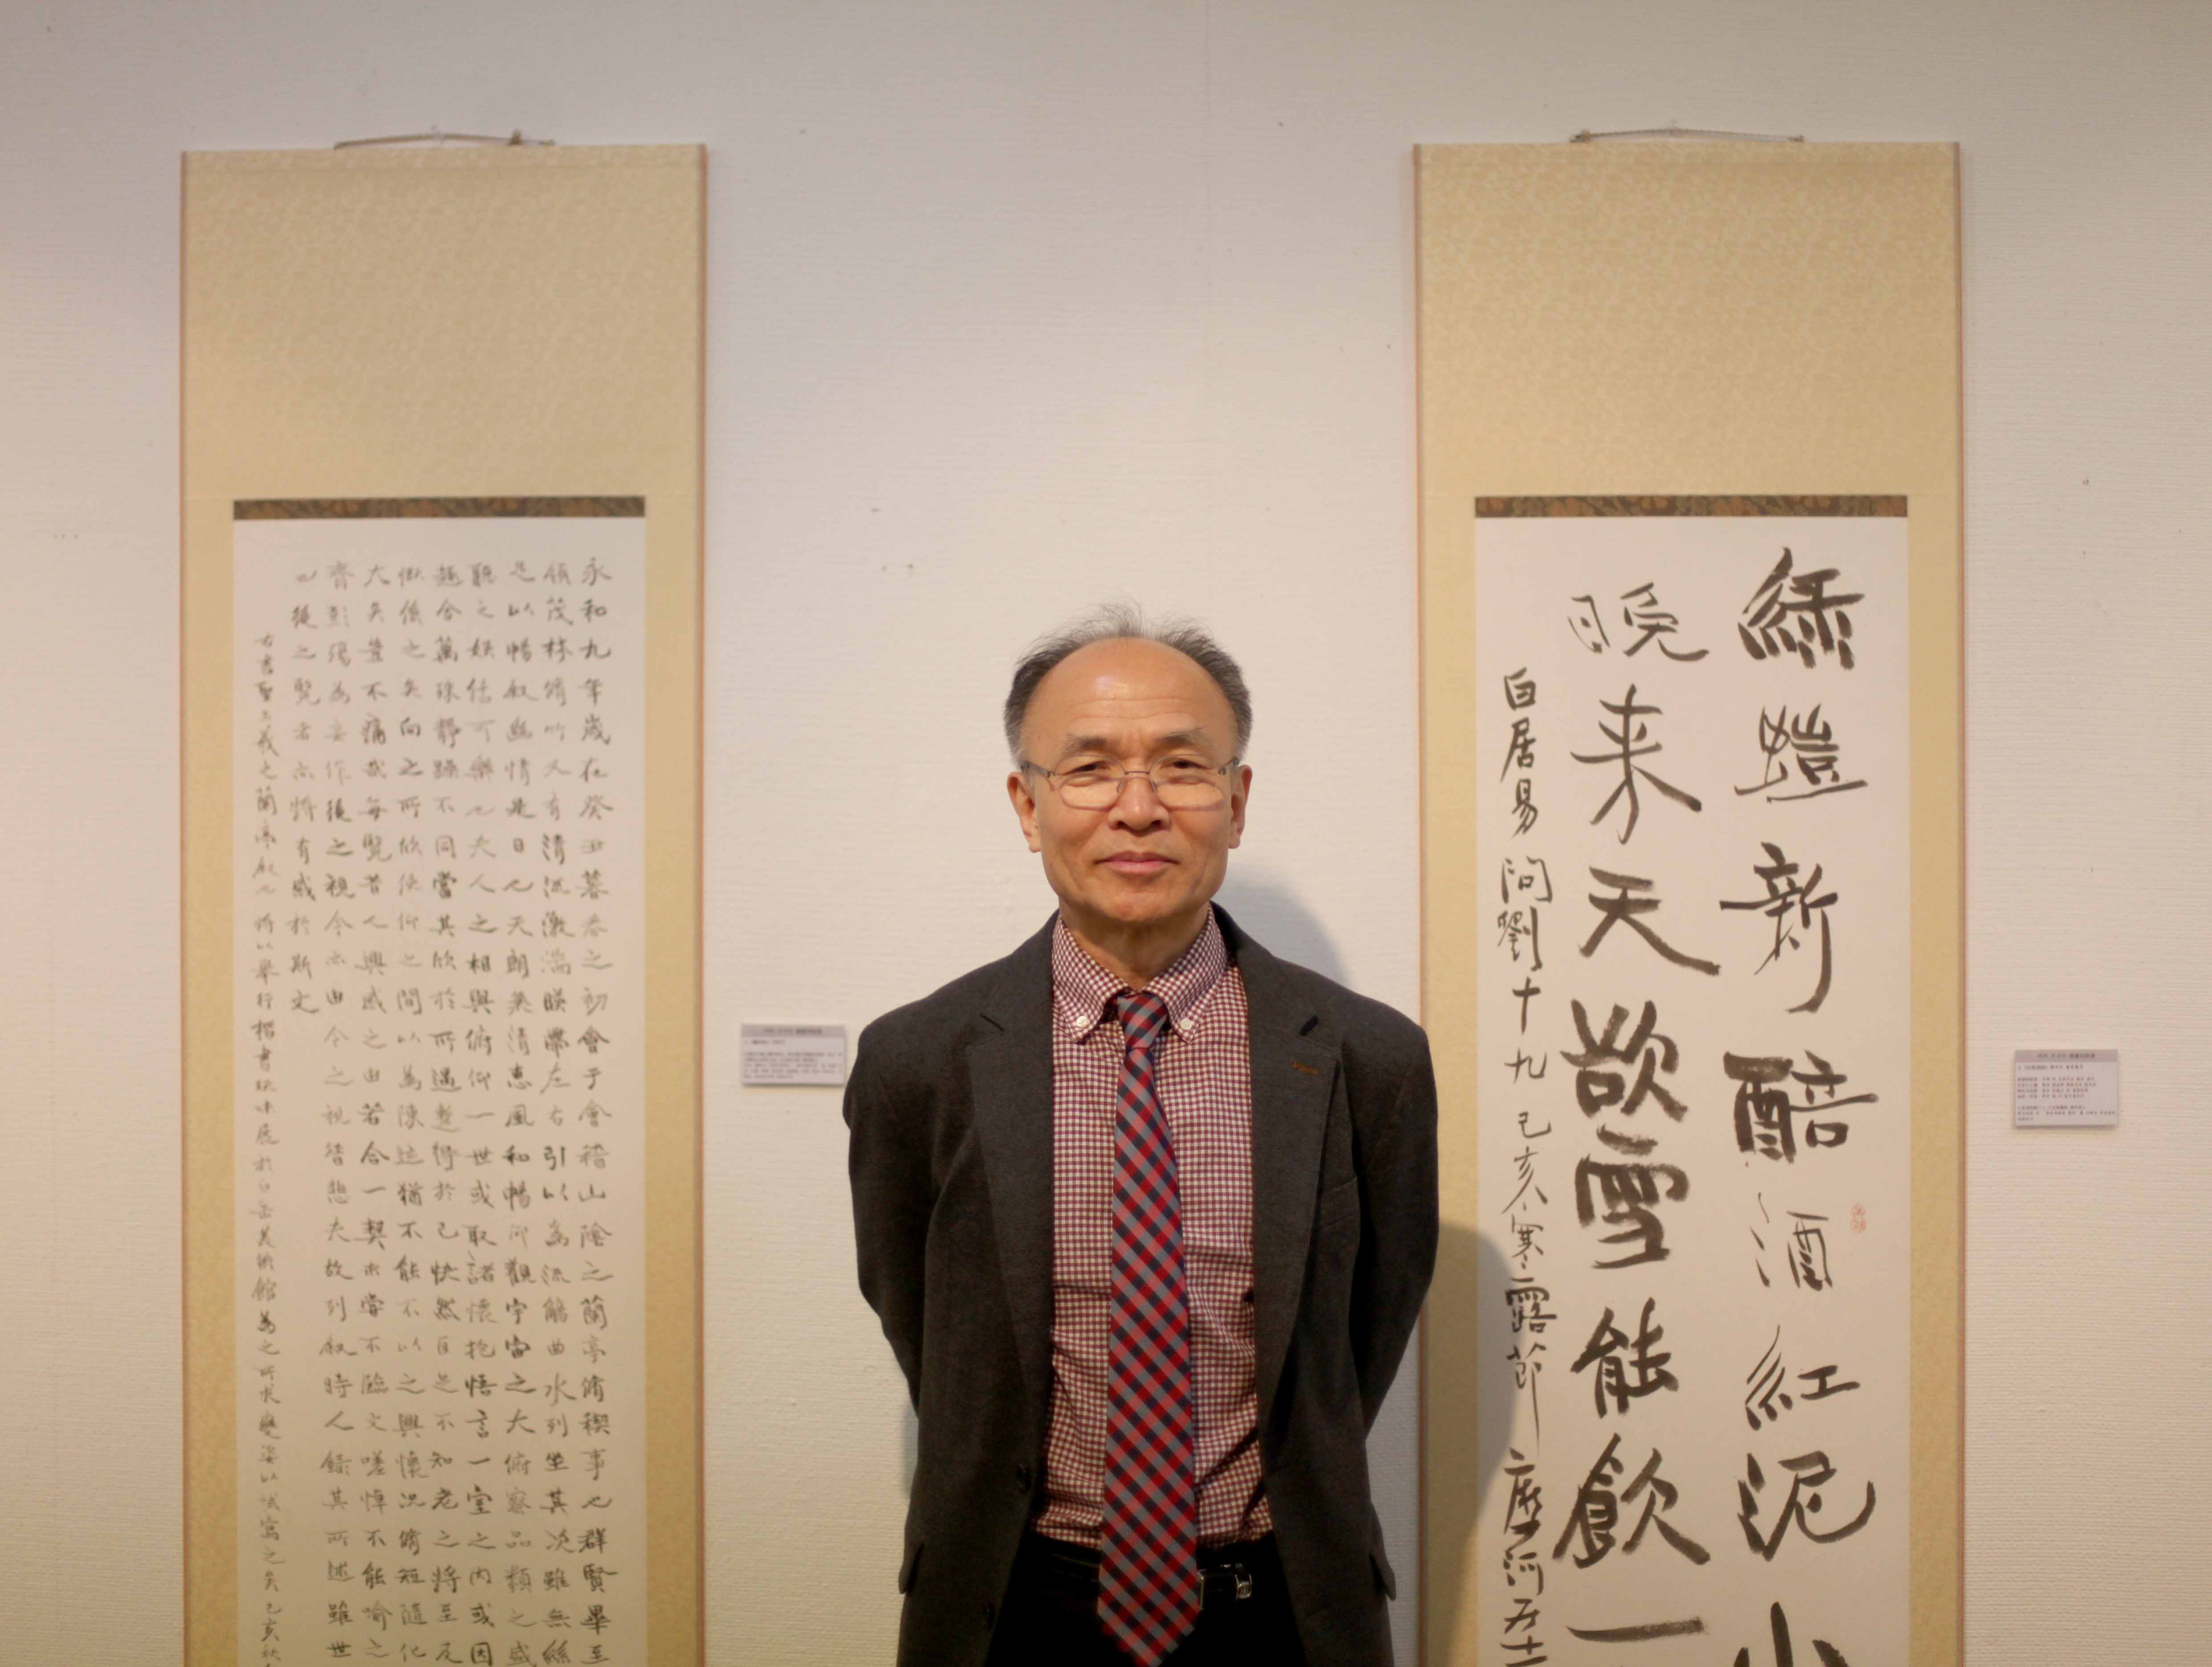 永和九年歲在癸丑暮春之初會于會稽山陰之蘭亭脩稧事也群賢畢至
領茂林脩竹又有清流激湍暎帶左右引以為流觴曲水列坐其次雖無絲
足以暢叙幽情是日也天朗氣清惠風和暢仰觀宇宙之大俯察品類之盛
聽之娛信可樂也夫人之相與俯仰一世或取諸懷抱悟言一室之內或因
趣舍萬殊靜躁不同當其欣於所遇蹔得於己快然自足不知老之將至及
慨係之矣向之所欣俛仰之間以為陳迹猶不能不以之興懷況脩短隨化
大矣豈不痛哉每覽昔人興感之由若合一契未嘗不臨文嗟悼不能喻之
齊彭殤為妄作後之視今亦由今之視昔悲夫故列叙時人錄其所述雖世
也後之覽者亦將有感於斯文
右書聖王羲之蘭亭叙也將以舉行楷書味展於白岳美術館為之所求變姿以試寫之矣己亥秋
綠螘新醅酒紅泥小
晚来天欲雪能飲一
白居易問劉十九 己亥寒露節